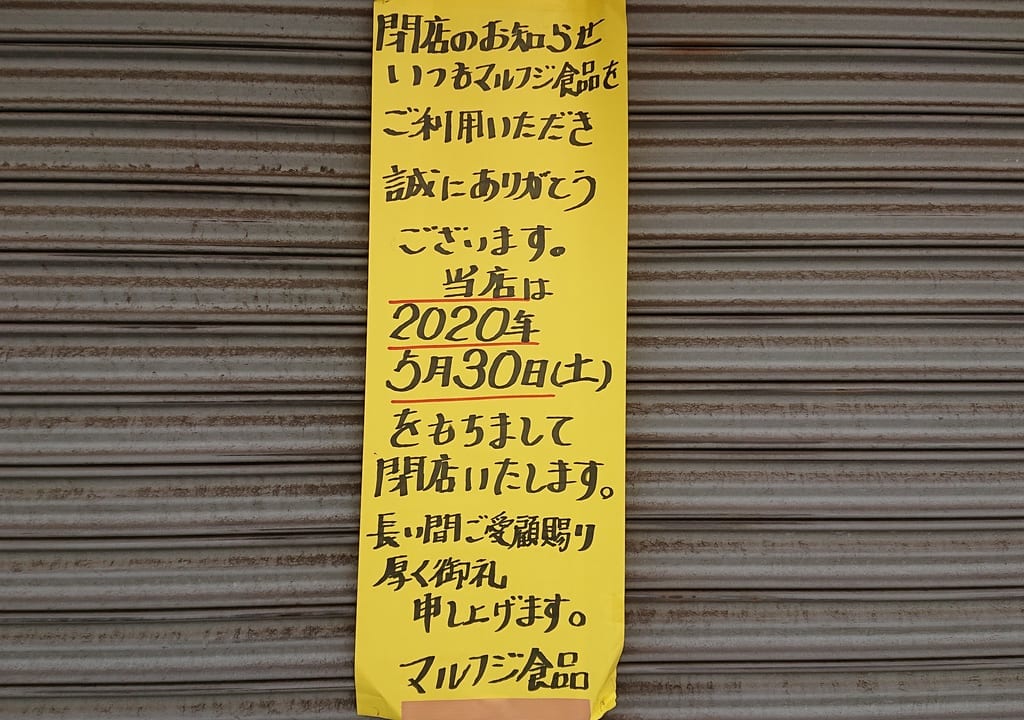 閉店のお知らせ
いつもマルフジ食品を
ご利用いただき
誠にありがとう
ございます。
当店は
2020年
5月30日(土)
をもちまして
閉店いたします。
長い間ご受顧賜り
厚く御礼
申し上げます。
マルフジ食品